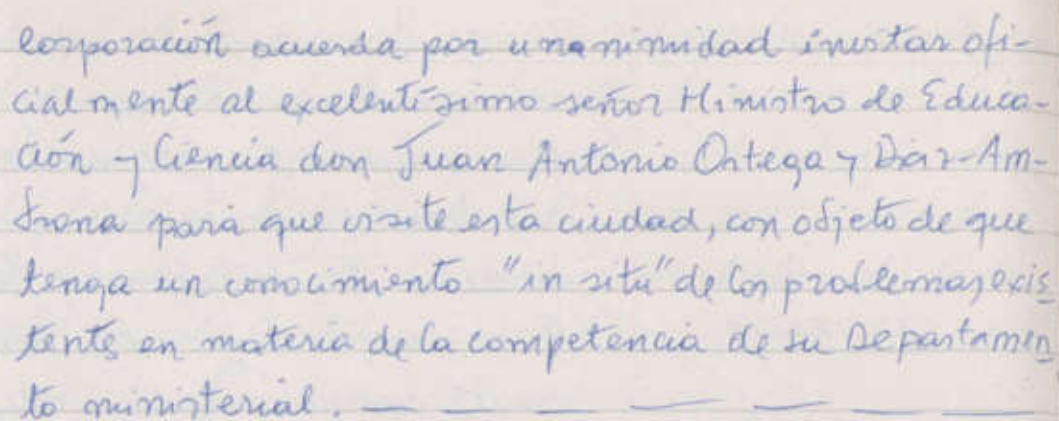 corporación acuerda por unanimidad invitar ofi-
cialmente al excelentísimo señor Ministro de Educa-
ción y Ciencia don Juan Antonio Ortega y Díaz-Am-
brona para que visite esta ciudad, con objeto de que
tenga un conocimiento "in situ" de los problemas exis
tentes en materia de la competencia de su Departamen
to ministerial. — — — — — — —